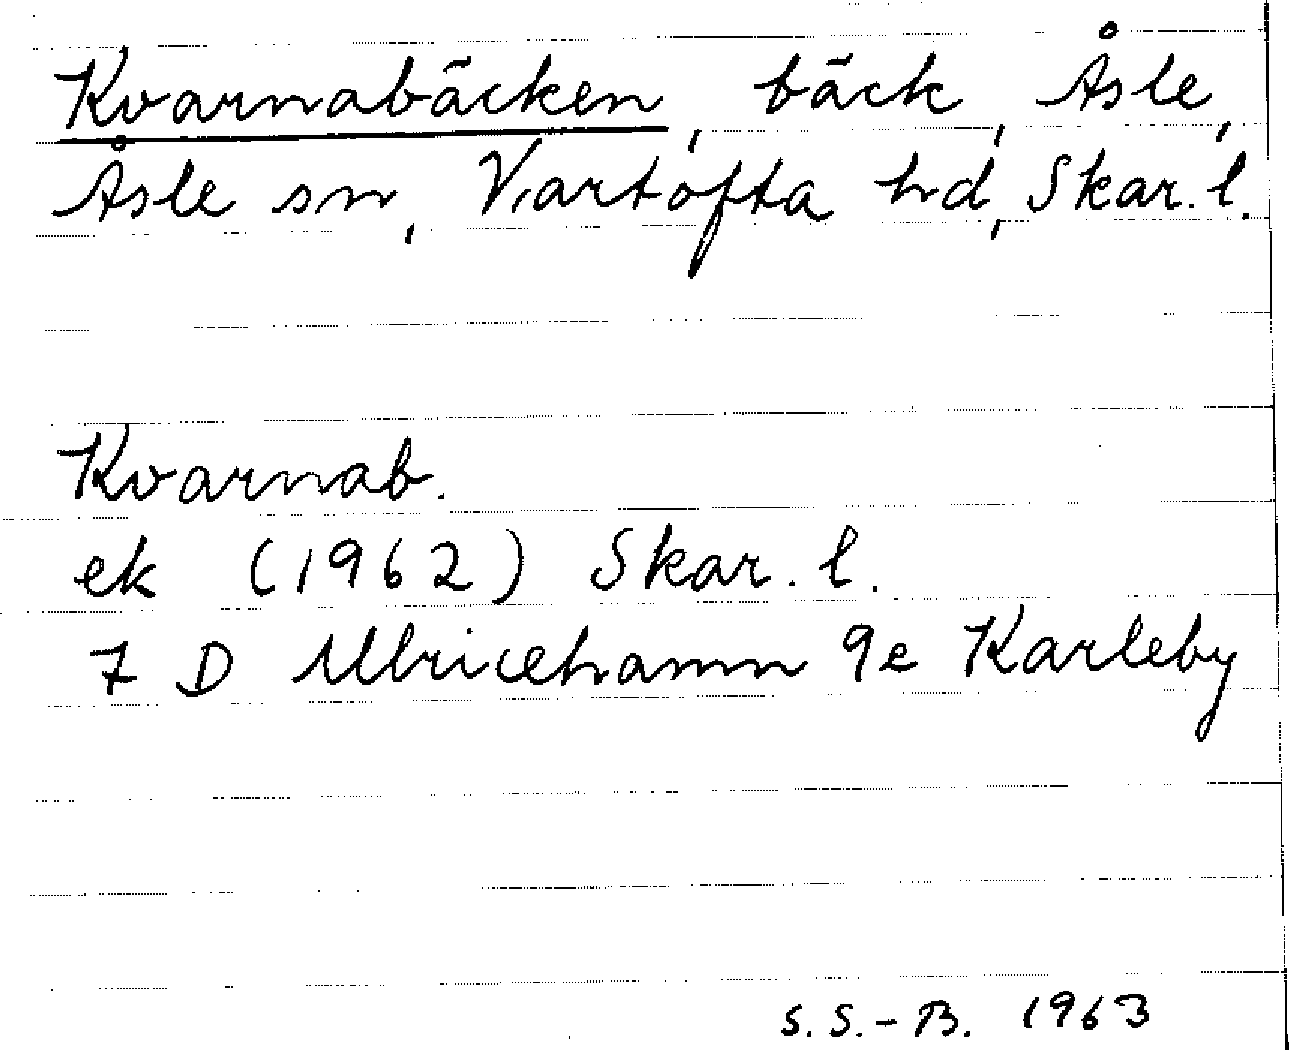 Kvarnabäcken, bäck, Åsle,
Åsle sn, Vartofta hd, Skar. l.
Kvarnab.
ek (1962) Skar. l.
7 D Ulricehamn 9e Karleby
S. S.-B. 1963